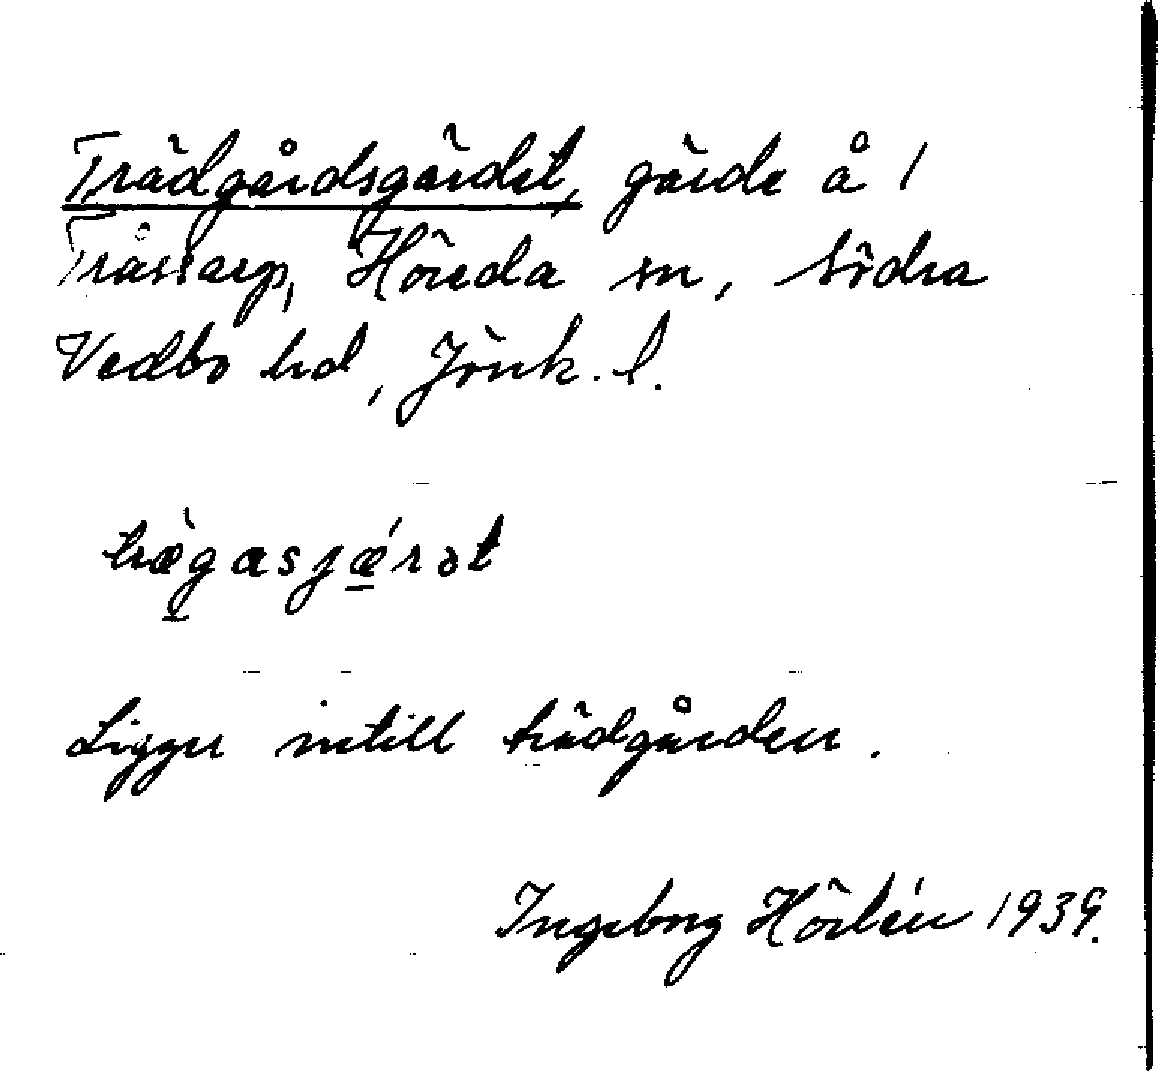 Trädgårdsgärdet, gärde å 1
Tråstarp, Höreda sn, Södra
Vedbo hd, Jönk. l.
træ̀gasjǽrət
Ligger intill trädgården.
Ingeborg Hörlén 1939.